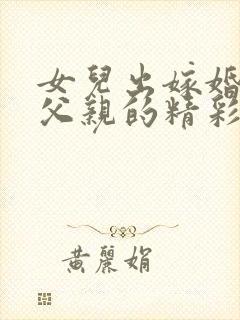 女兒出嫁婚
父親的精彩
黃麗娟